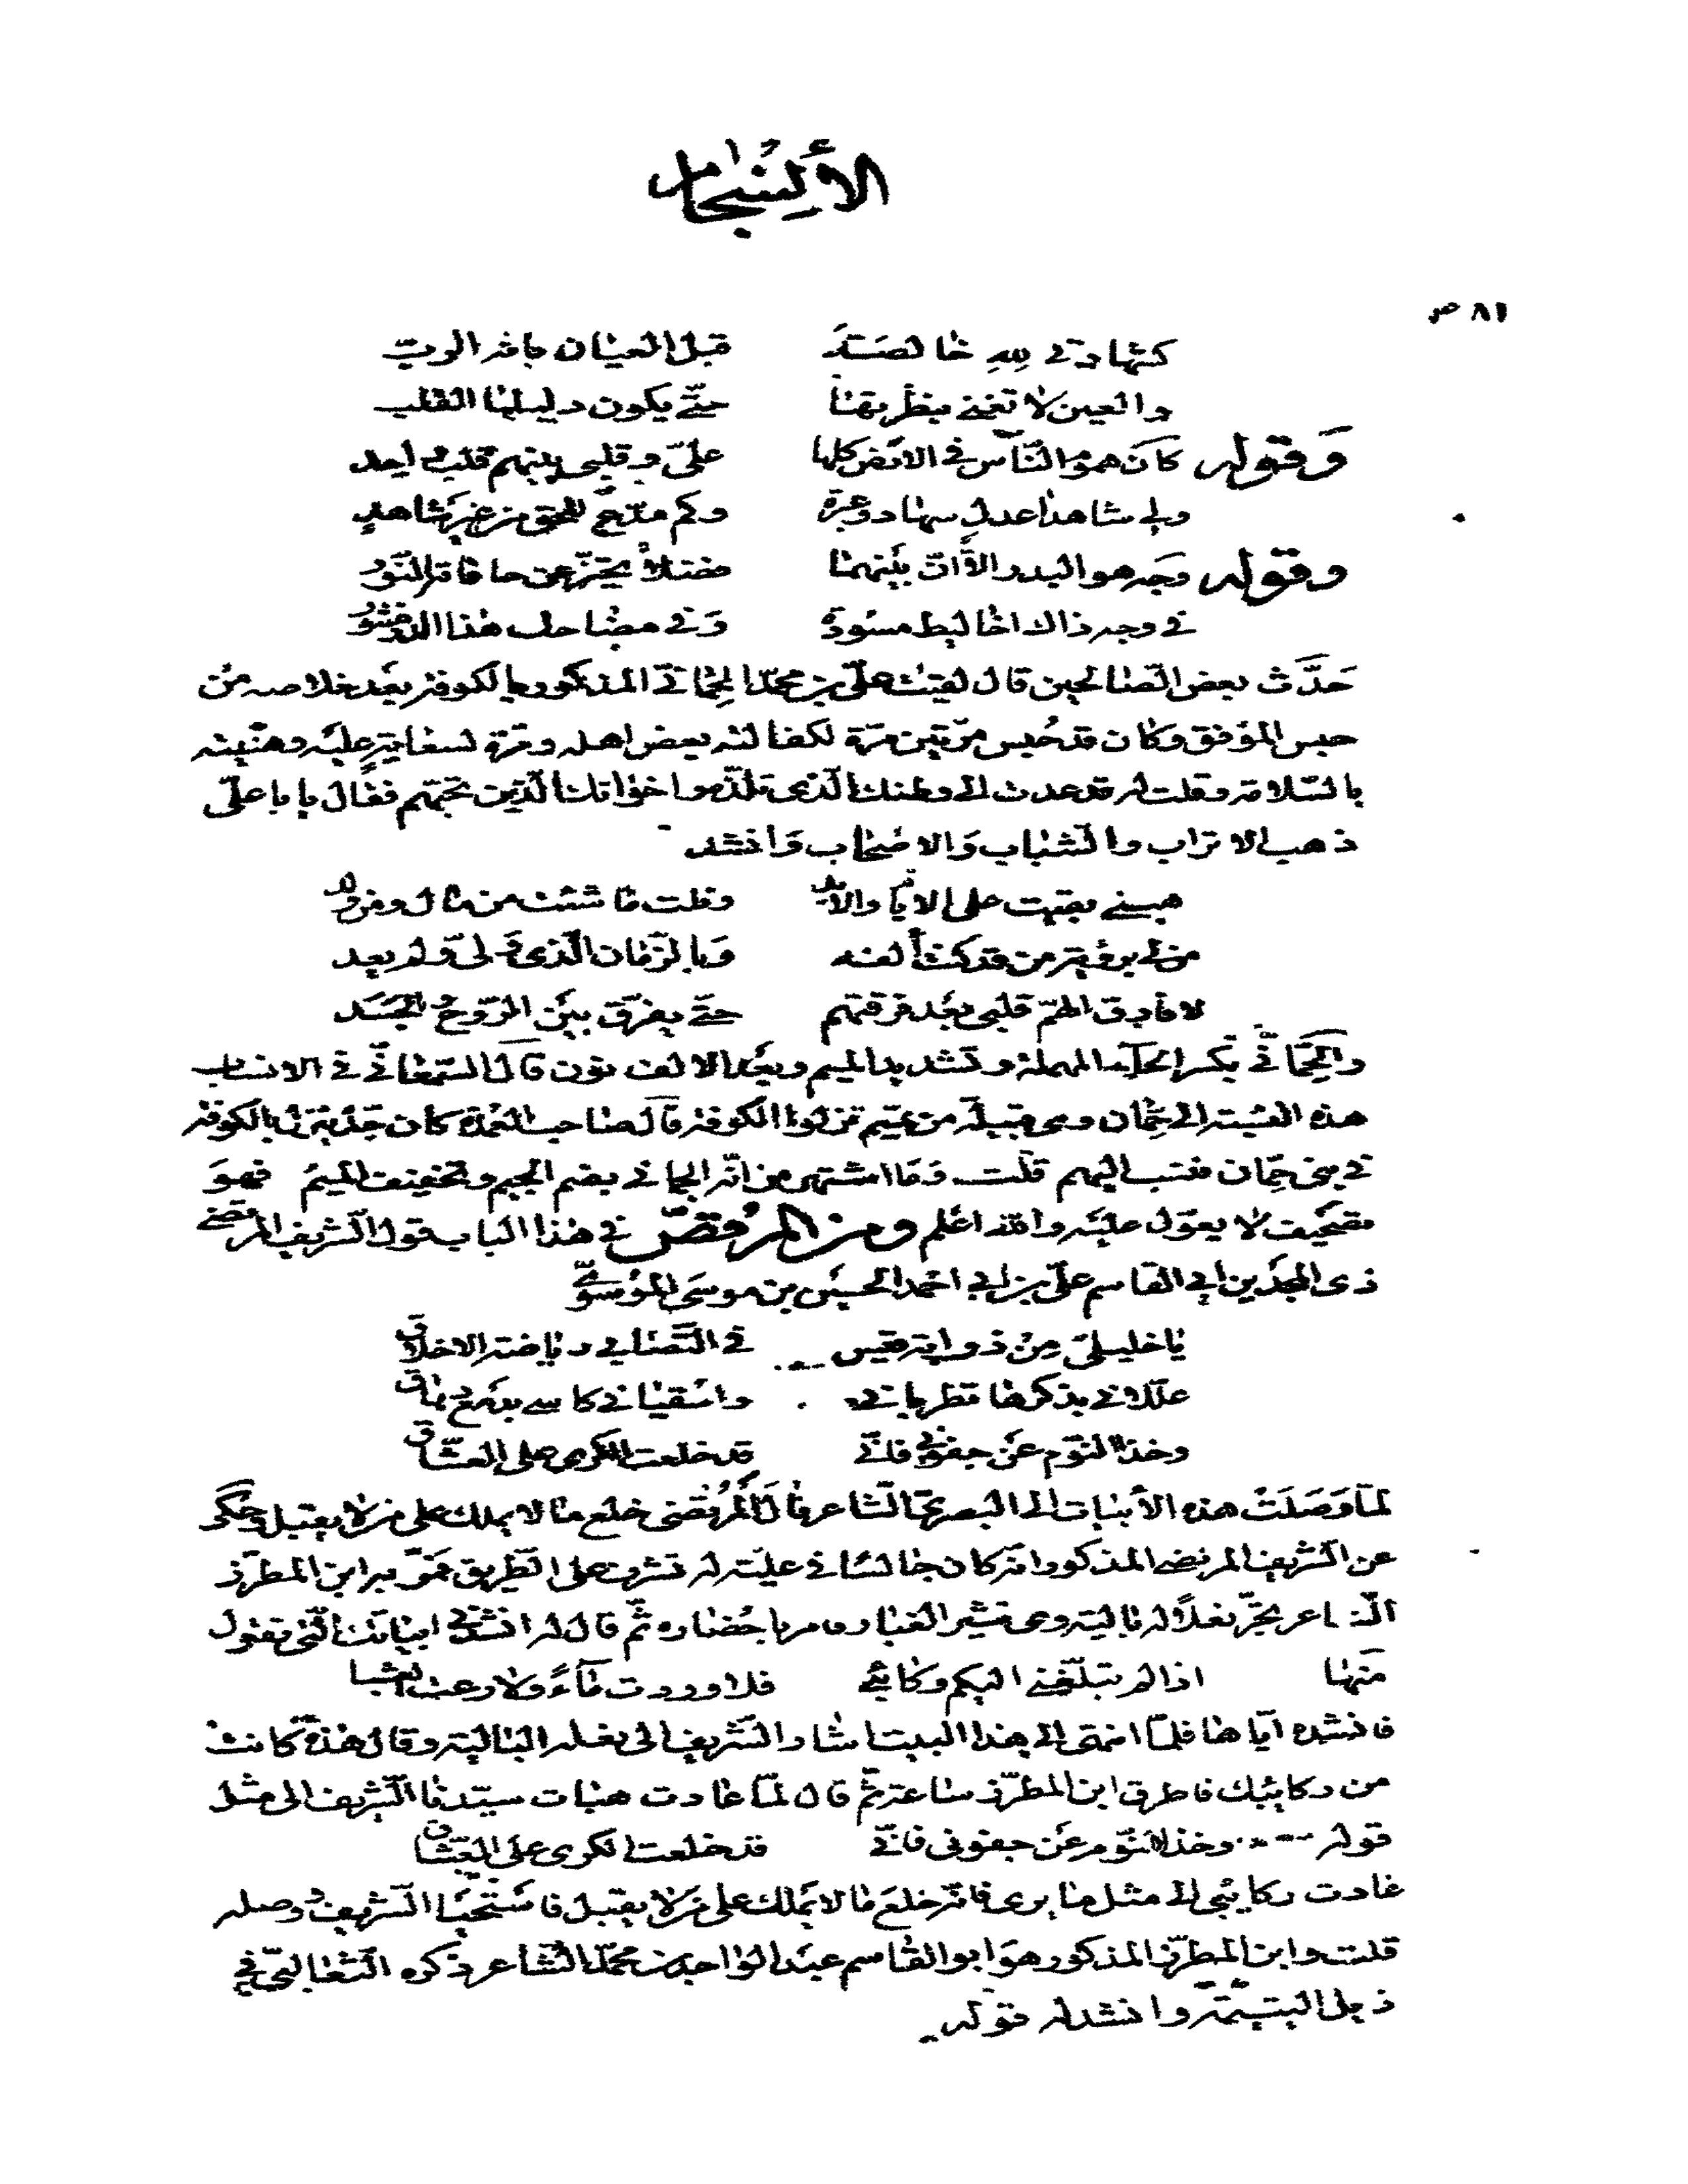 الأنسجام
٨١ ص
كشهادتي لله خالصة قبل العيان بانه الرب
والعين لا تغني بنظرتها حتّى يكون دليلها القلب
وقوله كان هموم النّاس في الارض كلها علىّ وقلبي بينهم قلب واحد
ولي شاهدا عدل سهاد وعبرة وكم مدّع للحق من غير شاهد
وقوله وجه هو البدر الّا انّ بينهما فضلاً تحيّز عن حافاته النّور
في وجه ذاك اخاليط مسودّة وفي مضاحك هذا الدرّ منثور
حدّث بعض الصّالحين قال لقيت علىّ بن محمّد الحِمّانّي المذكور بالكوفة بعد خلاصه من
حبس الموفق وكان قد حُبس مرّتين مرّة لكفالته بعض اهله ومرّة لسعاية عليه وهنّيته
بالسّلامة وقلت له قد عدت الى وطنك الّذى تلذّه واخوانك الّذين تحبّهم فقال يا با علىّ
ذهب الاتراب والشّباب والاصحاب وانشد
هبني بقيت على الايّام والابد ونلت ما شئت من مال ومن ولد
من لي برؤية من قد كنت ألفه وبالزّمان الّذى ولّى ولم يعد
لا فارق الهمّ قلبي بعد فرقتهم حتّى يفرّق بين الرّوح والجسد
والحِمّانّي بكسر الحآء المهملة وتشديد الميم وبعد الالف نون قال السّمعانّي في الانساب
هذه النسبة الى حِمّان وهى قبيلة من تميم نزلوا الكوفة قال صاحب العمدة كان جدّه ينزل بالكوفة
في بنى حِمّان فنسب اليهم قلت وما اشتهر من انّه الجماني بضم الجيم وتخفيف الميم فهو
تصحيف لا يعوّل عليه والله اعلم ومن المرقصّ في هذا الباب قول الشّريف المرتضى
ذى المجدين ابي القاسم علىّ بن ابي احمد الحسين بن موسى الموسوىّ
يا خليلىّ من ذوابة قيس في التّصابي رياضة الاخلاق
علّلاني بذكرها تطرباني واسقياني كاسي بدمع دهاق
وخذا النّوم عن جفوني فانّي قد خلعت الكرى على العشّاق
لمّا وَصَلَتْ هذه الأبيات الى البصرىّ الشّاعر قال المُرتضى خلع ما لا يملك على من لا يقبل وحُكى
عن الشّريف المرتضى المذكور انّه كان جالسًا في عليّة له تشرف على الطّريق فمرّ به ابن المطرّز
الشّاعر يجرّ نعلاً له بالية وهى تثير الغبار فامر باحضاره ثمّ قال له انشدني ابياتك الّتي تقول
منها اذا لم تبلّغني اليكم ركائبي فلا وردت مآءً ولا رعت العشبا
فانشده ايّاها فلمّا انتهى الى هذا البيت اشار الشّريف الى نعله البالية وقال هذه كانت
من ركائبك فاطرق ابن المطرّز ساعة ثمّ قال لمّا عادت هبات سيّدنا الشّريف الى مثل
قوله وخذا النّوم عن جفوني فانّي قد خلعت الكرى على العشّاق
عادت ركائبي الى مثل ما يرى فانّه خلع ما لا يملك على من لا يقبل فاستحيا الشّريف ووصله
قلت وابن المطرّز المذكور هو ابو القاسم عبد الواحد بن محمّد الشّاعر ذكره الثّعالبّي في
ذيل اليتيمة وانشد له قوله